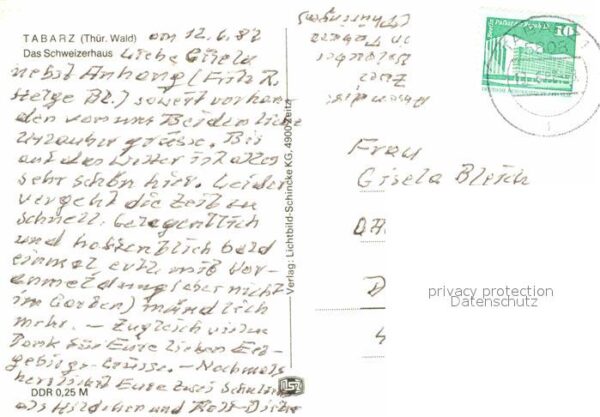 TABARZ (Thür. Wald) am 12.6.82
Das Schweizerhaus Liebe Gisela
nebst Anhang (Fritz R.
Helge Bl.) soweit vorhan
den von uns Beiden liebe
Urlaubergrüsse. Bis
auf das Wetter ist alles
sehr schön hier. Leider
vergeht die Zeit zu
schnell. Gelegentlich
und hoffentlich bald
einmal evtl. mit Vor-
anmeldung (aber nicht
im Garten) mündlich
mehr. – Zugleich vielen
Dank für Eure lieben Erz-
gebirgs-Grüsse. – Nochmals
herzlichst Eure zwei
als Hildchen und Rolf-Dieter
DDR 0,25 M
Verlag: Lichtbild-Schincke KG, 4900 Zeitz
Absender
Zurzeit
in Tabarz
Thüringen
10
Frau
Gisela Bleich
privacy protection
Datenschutz